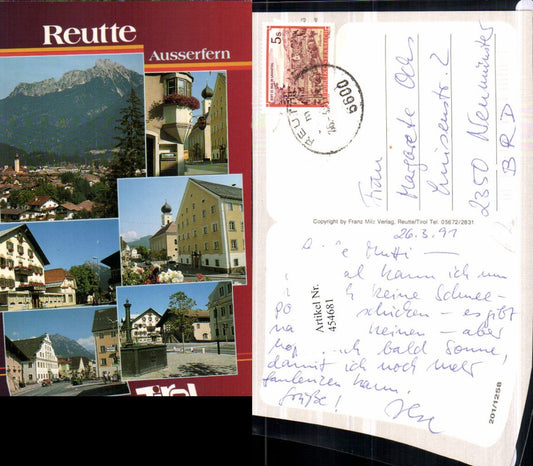 Reutte
Ausserfern
Tirol
5s
6600
REUTTE
Frau
Margarete Ochs
Luisenstr. 2
2350 Neumünster
BRD
Copyright by Franz Milz Verlag, Reutte/Tirol Tel. 05672/2831
26.3.91
Mutti —
kann ich nun
keine Schnee-
schicken — es gibt
keinen — aber
bald Sonne,
damit ich noch mehr
faulenzen kann.
Grüße!
Artikel Nr.
454681
201/1258